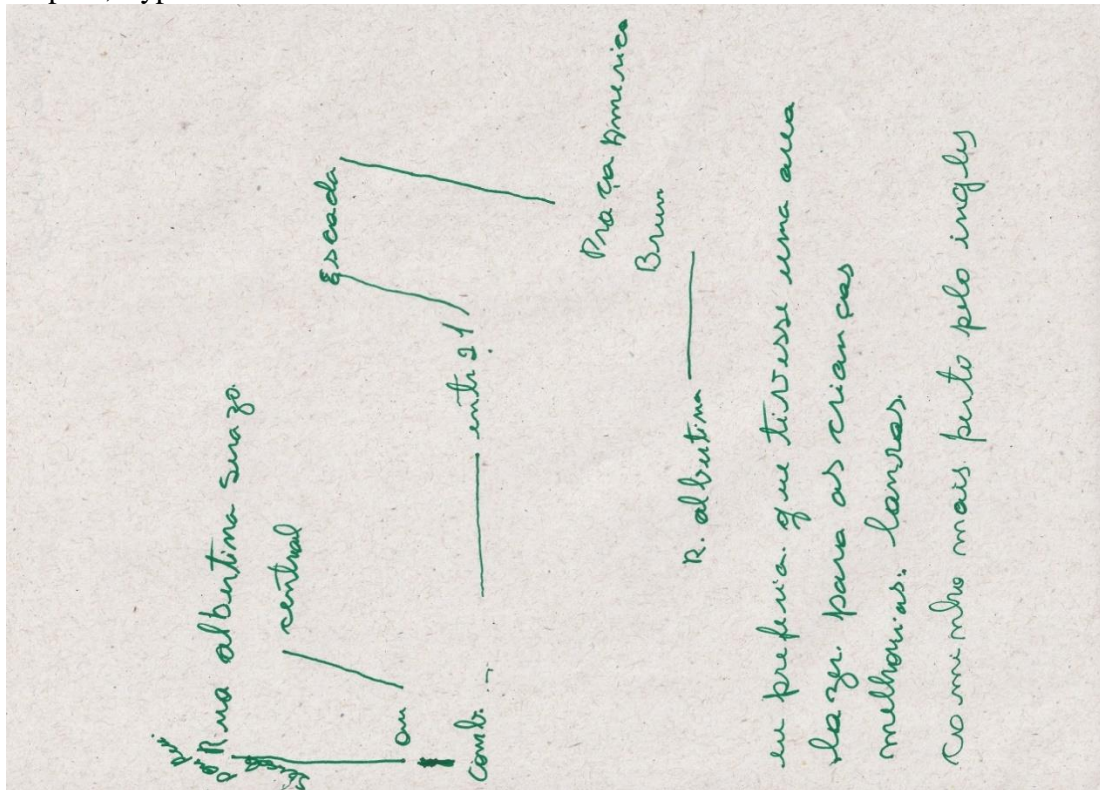 Rua albertina
central
ou
Comb.
entr 21
Escada
Praça America
Brum
R. albertina
eu preferia que tivesse uma area
lazer. para as crianças
melhorias.
caminho mais perto pelo ingles